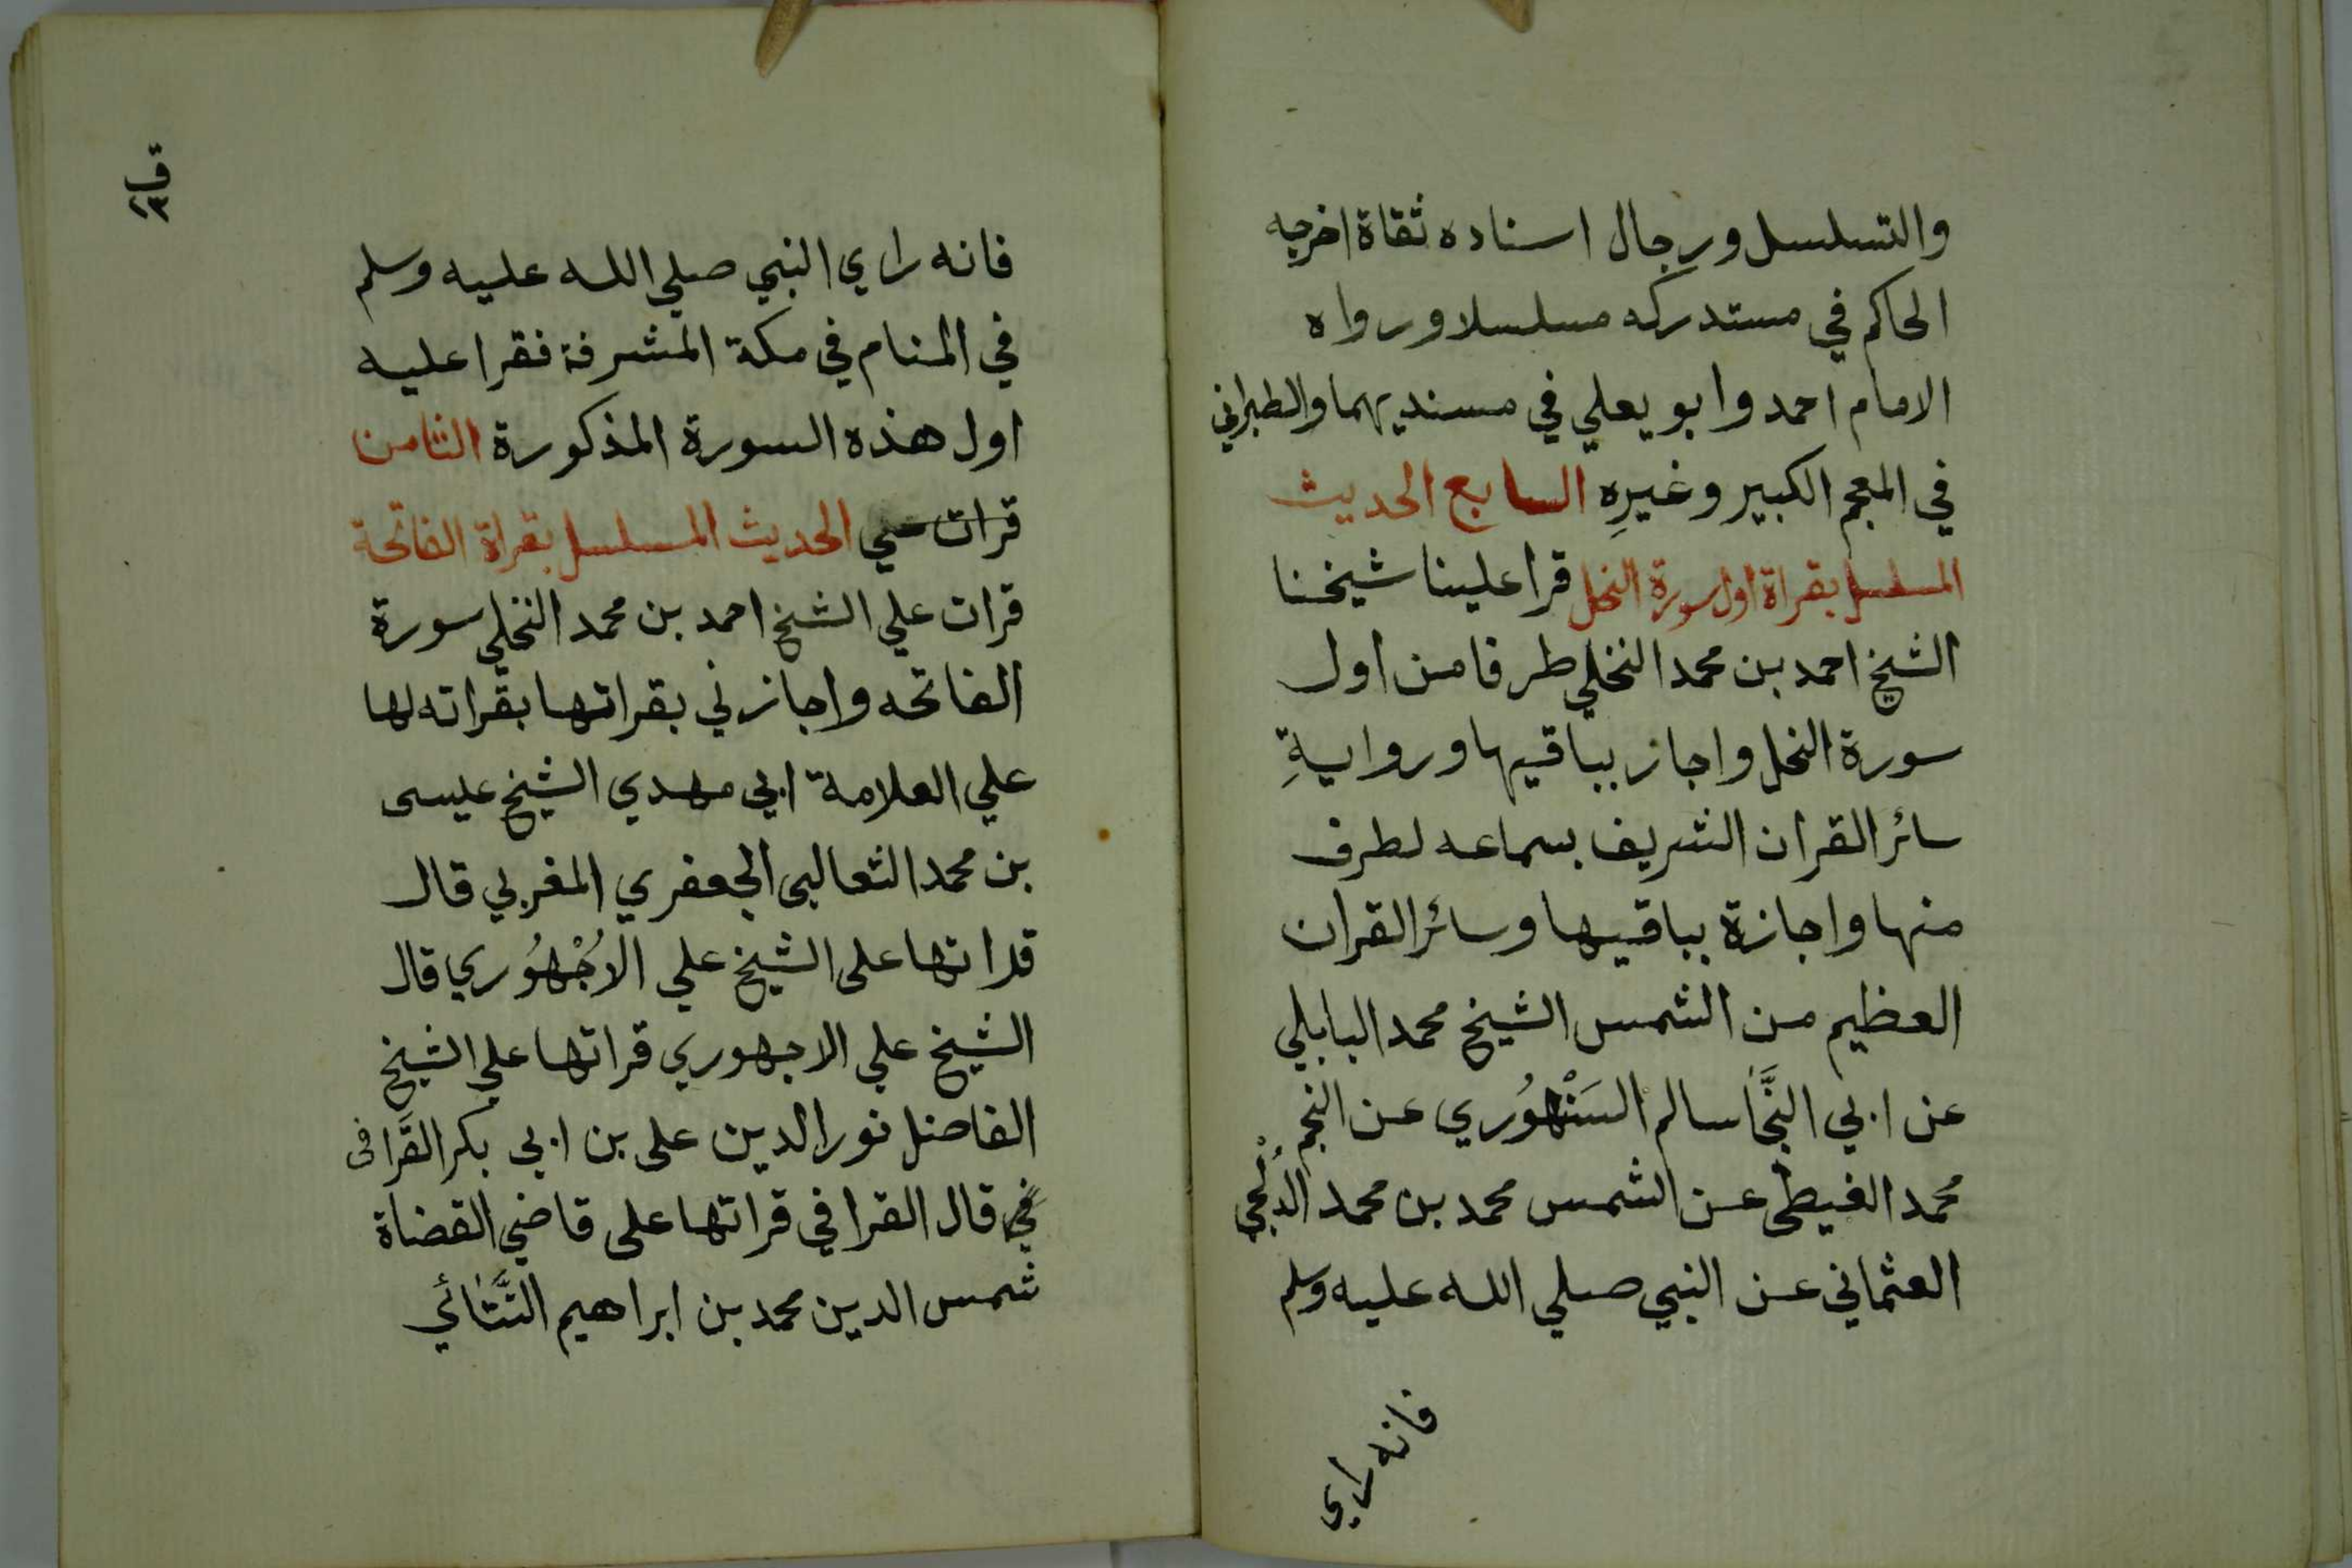 والتسلسل ورجال اسناده ثقاة اخرجه
الحاكم في مستدركه مسلسلا ورواه
الامام احمد وابو يعلي في مسنديهما والطبراني
في المعجم الكبير وغيرِه السابع الحديث
المسلسل بقراة اول سورة النحل قرا علينا شيخنا
الشيخ احمد بن محمد النخلي طرفا من اول
سورة النحل واجاز بباقيها وروايةِ
سائر القران الشريف بسماعه لطرف
منها واجازة بباقيها وسائر القران
العظيم من الشمس الشيخ محمد البابلي
عن ابي النَّجَا سالم السَنْهُوري عن النجم
محمد الغيطي عن الشمس محمد بن محمد الدُلْجي
العثماني عن النبي صلي الله عليه وسلم
فانه راي
فانه راي النبي صلي الله عليه وسلم
في المنام في مكة المشرفة فقرا عليه
اول هذه السورة المذكورة الثامن
قرات علي الحديث المسلسل بقراة الفاتحة
قرات علي الشيخ احمد بن محمد النخلي سورة
الفاتحه واجازني بقراتها بقراته لها
علي العلامة ابي مهدي الشيخ عيسى
بن محمد الثعالبي الجعفري المغربي قال
قراتها على الشيخ علي الاُجْهُوري قال
الشيخ علي الاجهوري قراتها علي الشيخ
الفاضل نور الدين على بن ابي بكر القَرافى
في قال القرافي قراتها على قاضي القضاة
شمس الدين محمد بن ابراهيم التَّتَائي